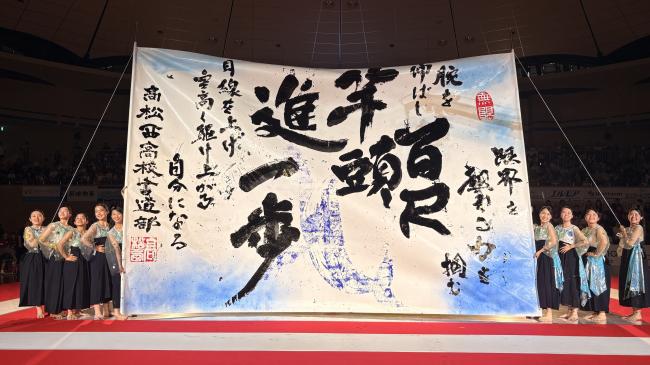 腕を
伸ばし
限界を
れる力を
掴む
無限
百尺
竿頭
進一歩
目線を上げ
空高く駆け上がる
自分になる
高松西高校書道部